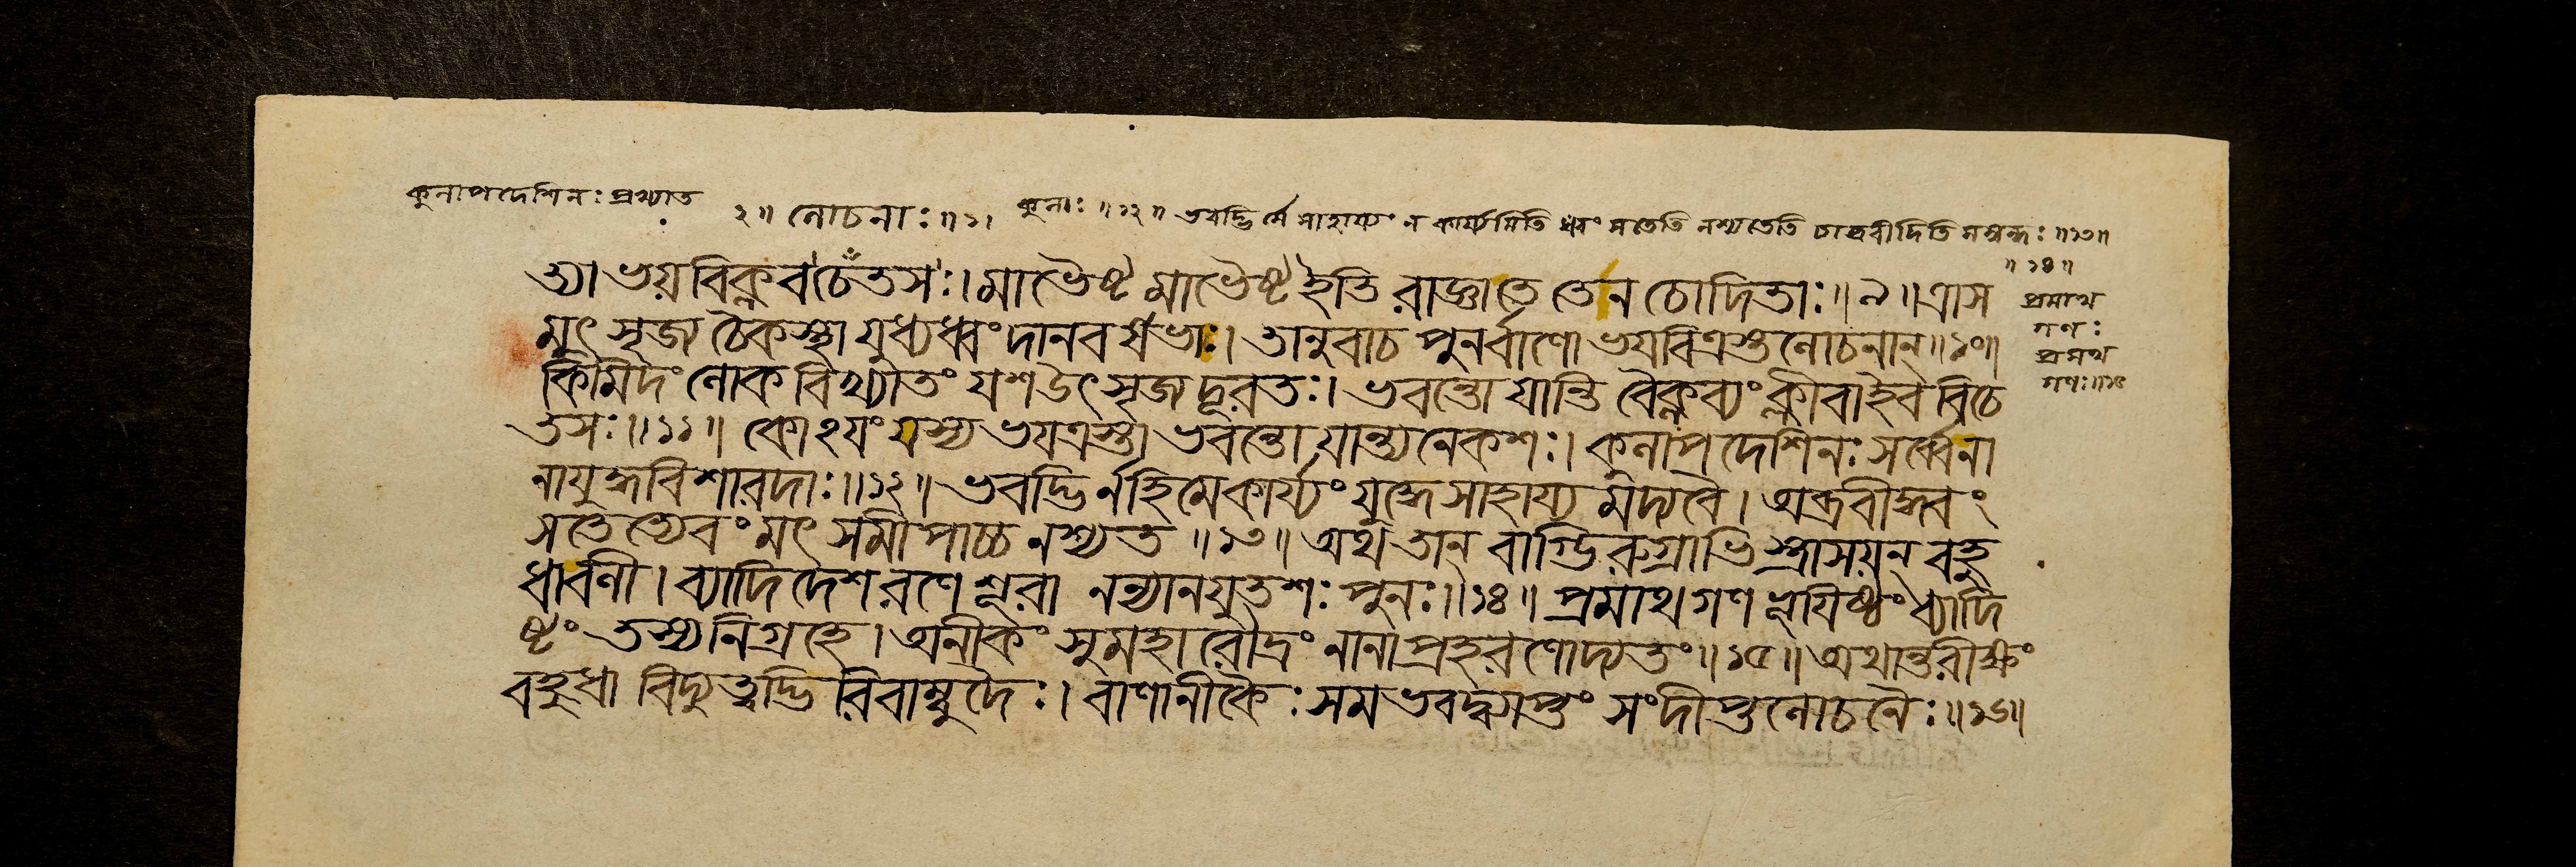 কুলাপদেশিনঃ প্রখ্যাত
২॥ লোচনাঃ॥১।
কুলাঃ॥১২॥ ভবদ্ভির্মে সাহায্যং ন কার্য্যমিতি ধ্রুবং সতেতি নশ্যতেতি চাব্রবীদিতি সম্বন্ধঃ॥১৩॥
॥১৪॥
ত্যা ভয়বিক্লবচেতসঃ। মাভৈষ্ট মাভৈষ্ট ইতি রাজ্ঞা তে তেন চোদিতাঃ॥৯॥ ত্রাস
মুৎসৃজ্য চৈকস্থা যুধ্যধ্বং দানবর্ষভাঃ। তানুবাচ পুনর্বাণো ভযবিত্রস্তলোচনান্॥১০॥
কিমিদং লোকবিখ্যাতং যশ উৎসৃজ্য দূরতঃ। ভবন্তো যান্তি বৈক্লব্যং ক্লীবা ইব বিচে
তসঃ॥১১॥ কোঽযং যস্য ভযত্রস্তা ভবন্তো যান্ত্যনেকশঃ। কুলাপদেশিনঃ সর্ব্বে না
নাযুদ্ধবিশারদাঃ॥১২॥ ভবদ্ভির্নহি মে কার্য্যং যুদ্ধে সাহায্যমদ্য বৈ। অব্রবীদ্ধ্বং
সতেত্যেবং মৎসমীপাচ্চ নশ্যত॥১৩॥ অথ তান্ বাগ্ভিরুগ্রাভিস্ত্রাসয়ন্ বহু
ধা বলী। ব্যাদিদেশ রণে শূরা নন্যানযুতশঃ পুনঃ॥১৪॥ প্রমাথগণভূযিষ্ঠং ব্যাদি
ষ্টং তস্য নিগ্রহে। অনীকং সুমহারৌদ্রং নানাপ্রহরণোদ্যতং॥১৫॥ অথান্তরীক্ষং
বহুধা বিদ্যুত্বদ্ভিরিবাম্বুদৈঃ। বাণানীকৈঃ সমভবদ্ব্যাপ্তং সংদীপ্তলোচনৈঃ॥১৬॥
প্রমাথ
গণঃ
প্রমথ
গণঃ॥১৫